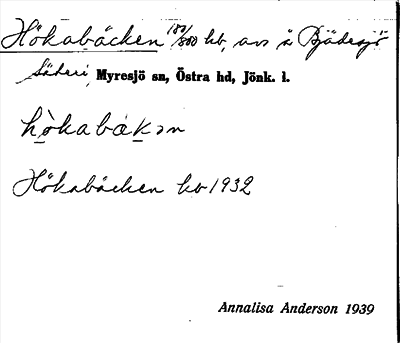 Hökabäcken 1881/800 kb, avs å Bjädesjö
Säteri, Myresjö sn, Östra hd, Jönk. l.
hòkabakən
Hökabäcken kb 1932
Annalisa Anderson 1939